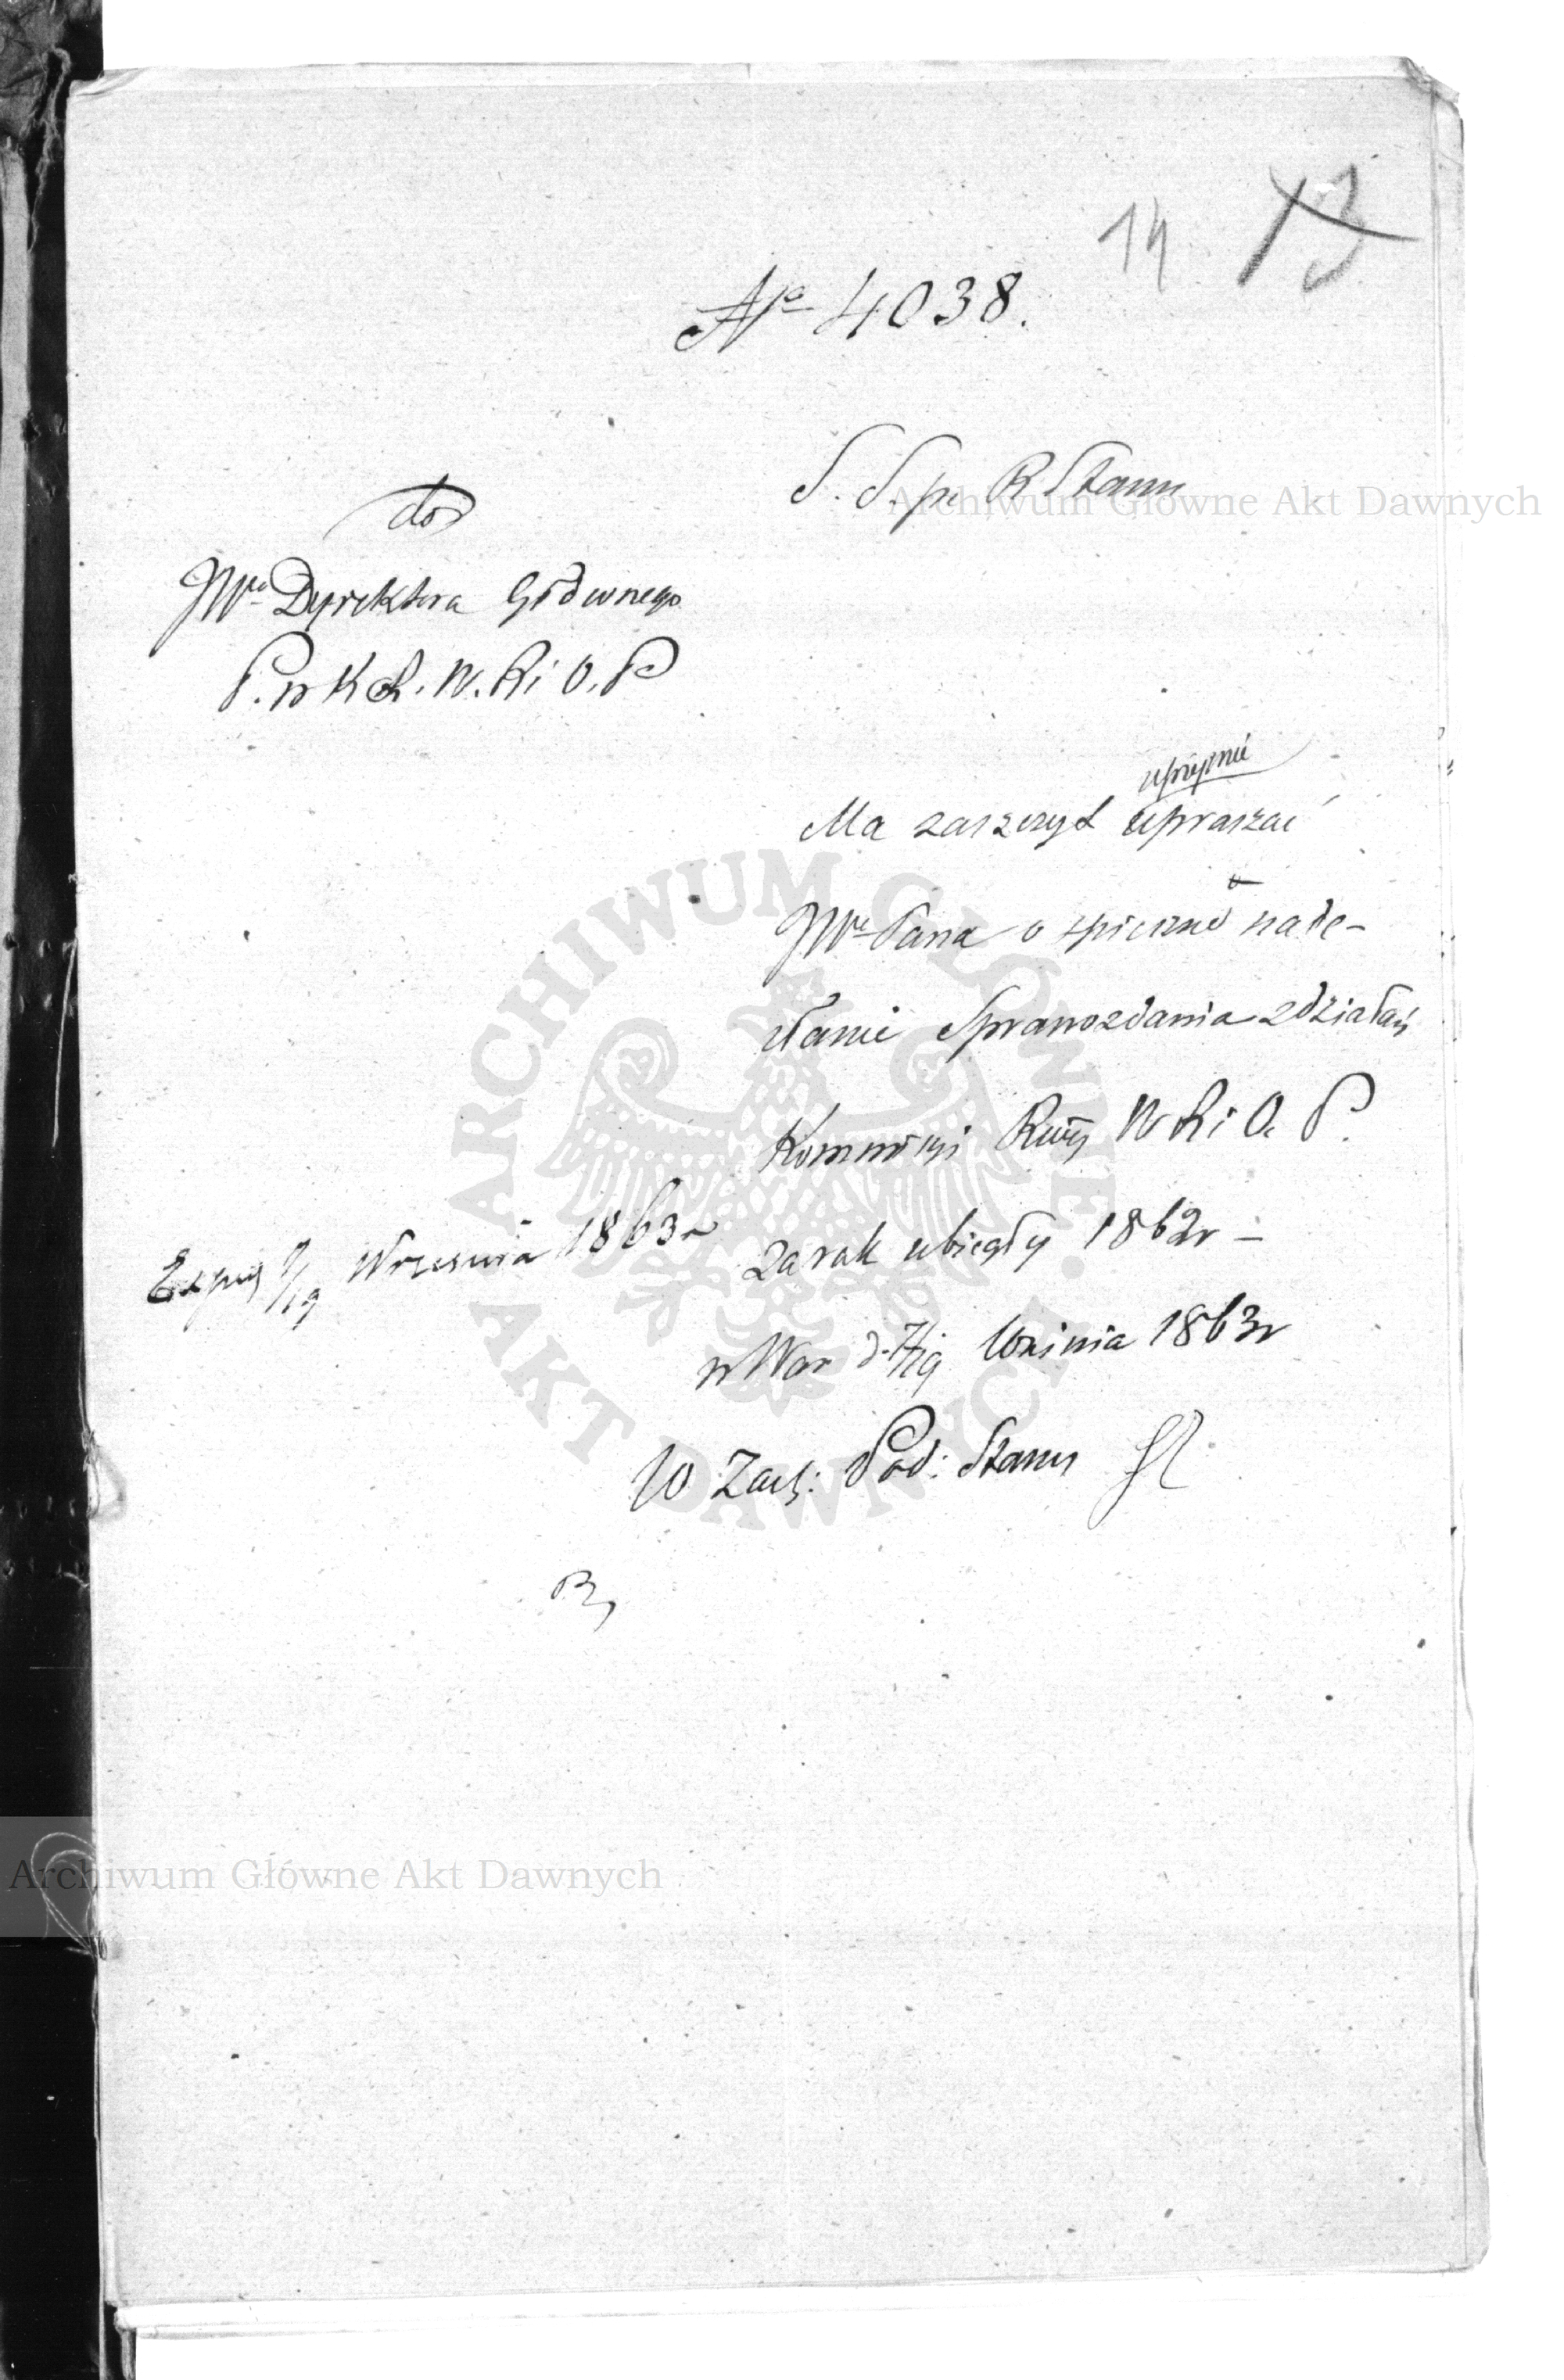 14 13
No 4038.
S. S. pr. R Stanu
do
JWo Dyrektora Głównego
P. w K. R. W. R i O. P
uprzejmie
Ma zaszczyt upraszać
JWo Pana o spieszne nade-
słanie Sprawozdania z działań
Kommissyi Rząj W R i O. P.
za rok ubiegły 1862 r –
Exped 7/19 Wrzesnia 1863 r
w War d. 7/19 Wrznia 1863 r
W Zast: Pod: Stanu
Archiwum Główne Akt Dawnych
ARCHIWUM GŁÓWNE AKT DAWNYCH
Archiwum Główne Akt Dawnych